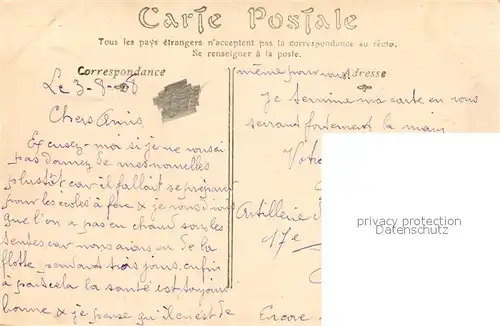 Carte Postale
Tous les pays étrangers n'acceptent pas la correspondance au recto.
Se renseigner à la poste.
Correspondance
Adresse
Le 3-8-08
Chers Amis
Excusez-moi si je ne vous ai
pas donnez de mes nouvelles
plustôt car il fallait se préparer
pour les écoles à feu & je vous dirais
que l'on a pas eu chaud sous les
tentes car nous avions eu de la
flotte pendant trois jours, enfin
à part cela la santé est toujours
bonne & je pense qu'il en est de
même pour vous
Je termine ma carte en vous
serrant fortement la main
Votre
Artillerie
17e
Encore
privacy protection